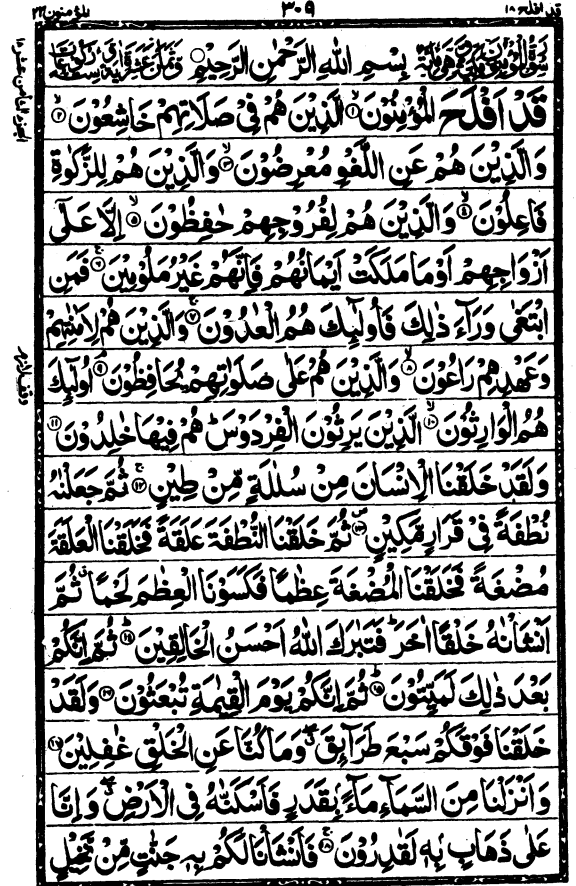 قد افلح ١٨
٣٠٩
المؤمنون ٢٣
بِسْمِ اللهِ الرَّحْمٰنِ الرَّحِيْمِ
قَدْ اَفْلَحَ الْمُؤْمِنُوْنَ ۙ١ الَّذِيْنَ هُمْ فِيْ صَلَاتِهِمْ خَاشِعُوْنَ ۙ٢
وَالَّذِيْنَ هُمْ عَنِ اللَّغْوِ مُعْرِضُوْنَ ۙ٣ وَالَّذِيْنَ هُمْ لِلزَّكٰوةِ
فَاعِلُوْنَ ۙ٤ وَالَّذِيْنَ هُمْ لِفُرُوْجِهِمْ حٰفِظُوْنَ ۙ٥ اِلَّا عَلٰٓى
اَزْوَاجِهِمْ اَوْ مَا مَلَكَتْ اَيْمَانُهُمْ فَاِنَّهُمْ غَيْرُ مَلُوْمِيْنَ ۚ٦ فَمَنِ
ابْتَغٰى وَرَآءَ ذٰلِكَ فَاُولٰٓئِكَ هُمُ الْعٰدُوْنَ ۚ٧ وَالَّذِيْنَ هُمْ لِاَمٰنٰتِهِمْ
وَعَهْدِهِمْ رَاعُوْنَ ۙ٨ وَالَّذِيْنَ هُمْ عَلٰى صَلَوٰتِهِمْ يُحَافِظُوْنَ ۘ٩ اُولٰٓئِكَ
هُمُ الْوَارِثُوْنَ ۙ١٠ الَّذِيْنَ يَرِثُوْنَ الْفِرْدَوْسَ ؕ هُمْ فِيْهَا خٰلِدُوْنَ ١١
وَلَقَدْ خَلَقْنَا الْاِنْسَانَ مِنْ سُلٰلَةٍ مِّنْ طِيْنٍ ۚ١٢ ثُمَّ جَعَلْنٰهُ
نُطْفَةً فِيْ قَرَارٍ مَّكِيْنٍ ۪١٣ ثُمَّ خَلَقْنَا النُّطْفَةَ عَلَقَةً فَخَلَقْنَا الْعَلَقَةَ
مُضْغَةً فَخَلَقْنَا الْمُضْغَةَ عِظٰمًا فَكَسَوْنَا الْعِظٰمَ لَحْمًا ۗ ثُمَّ
اَنْشَاْنٰهُ خَلْقًا اٰخَرَ ؕ فَتَبٰرَكَ اللهُ اَحْسَنُ الْخَالِقِيْنَ ؕ١٤ ثُمَّ اِنَّكُمْ
بَعْدَ ذٰلِكَ لَمَيِّتُوْنَ ؕ١٥ ثُمَّ اِنَّكُمْ يَوْمَ الْقِيٰمَةِ تُبْعَثُوْنَ ١٦ وَلَقَدْ
خَلَقْنَا فَوْقَكُمْ سَبْعَ طَرَآئِقَ ۖ وَمَا كُنَّا عَنِ الْخَلْقِ غٰفِلِيْنَ ١٧
وَاَنْزَلْنَا مِنَ السَّمَآءِ مَآءً بِقَدَرٍ فَاَسْكَنّٰهُ فِي الْاَرْضِ ۖ وَاِنَّا
عَلٰى ذَهَابٍ بِهٖ لَقٰدِرُوْنَ ۚ١٨ فَاَنْشَاْنَا لَكُمْ بِهٖ جَنّٰتٍ مِّنْ نَّخِيْلٍ
الجزء الثامن عشر ١٨